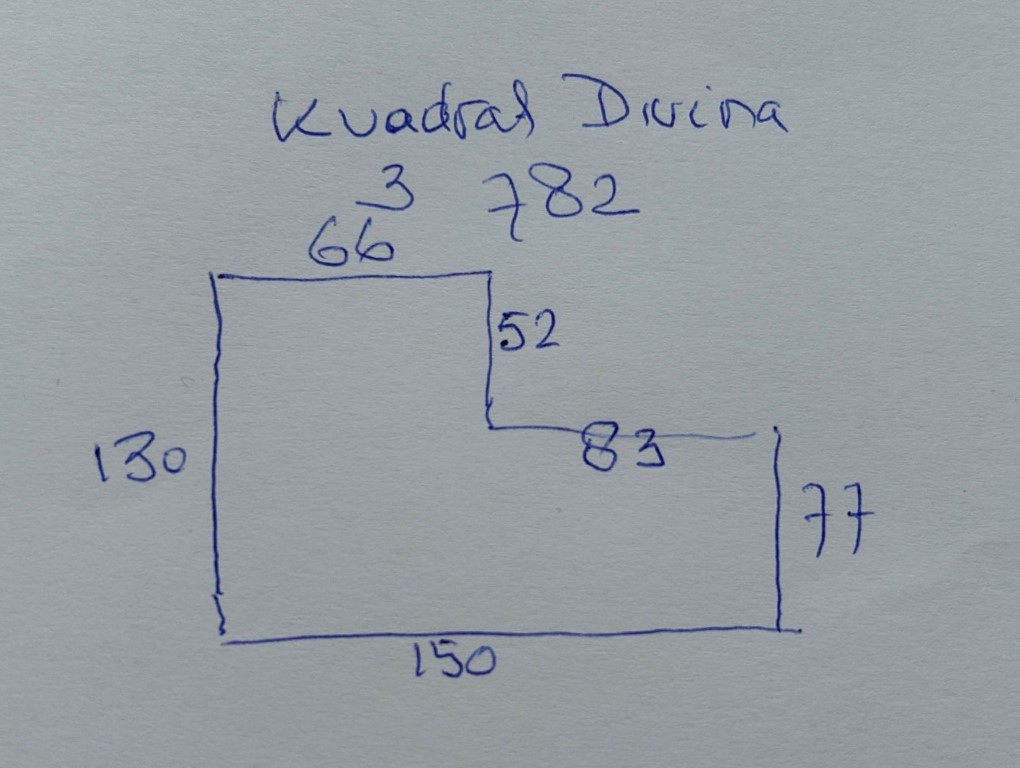 Kvadrat Divina
3 782
66
52
83
130
77
150